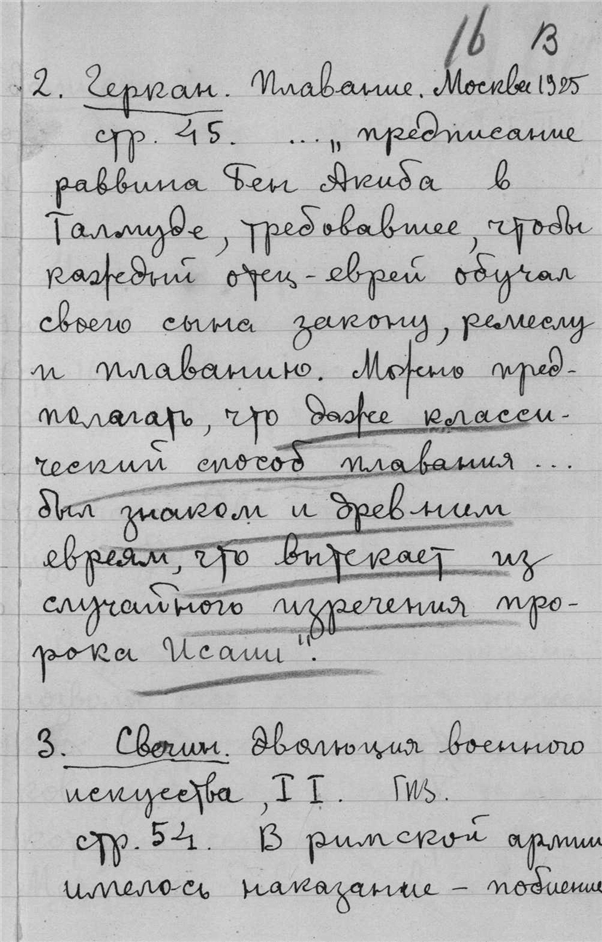 16 В
2. Геркан. Плавание. Москва 1925
стр. 45. ... „предписание
раввина Бен Акиба в
Талмуде, требовавшее, чтобы
каждый отец-еврей обучал
своего сына закону, ремеслу
и плаванию. Можно пред-
полагать, что даже класси-
ческий способ плавания ...
был знаком и древним
евреям, что вытекает из
случайного изречения про-
рока Исаии“.
3. Свечин. Эволюция военного
искусства, II. Гиз.
стр. 54. В римской армии
имелось наказание – побиение